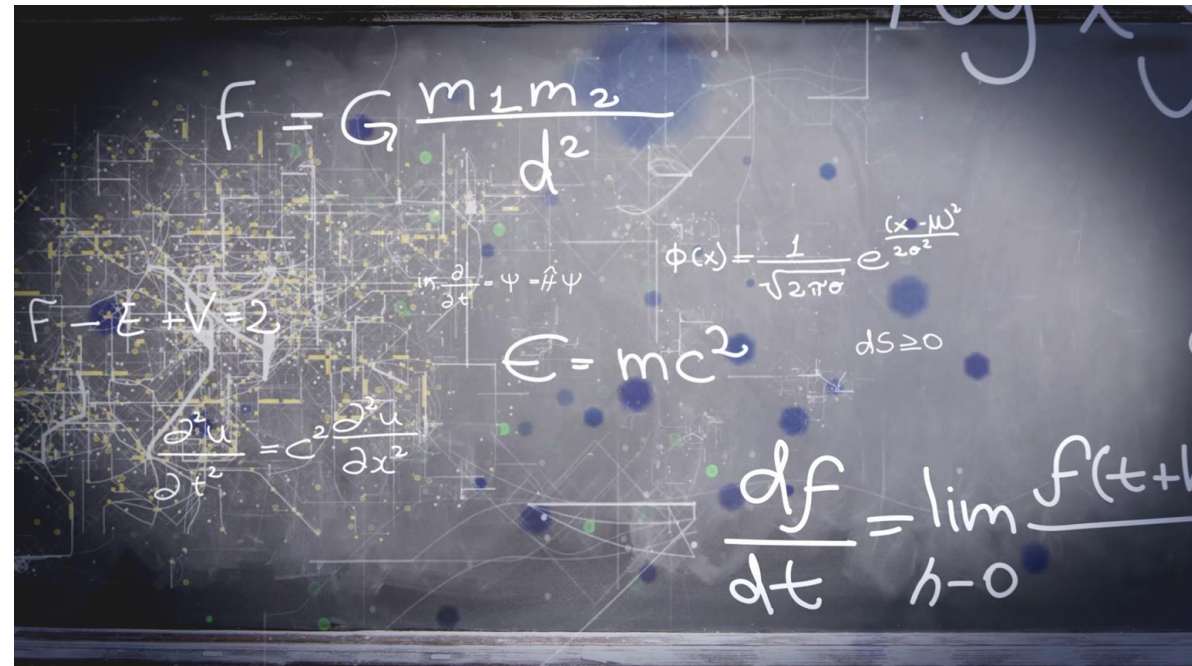 log x y
F = G m1m2 / d²
φ(x) = 1 / √2πσ e (x-μ)² / 2σ²
iħ ∂/∂t = Ψ = ĤΨ
F - E + V = 2
E = mc²
dS ≥ 0
∂²u / ∂t² = c² ∂²u / ∂x²
df / dt = lim h-0 f(t+h